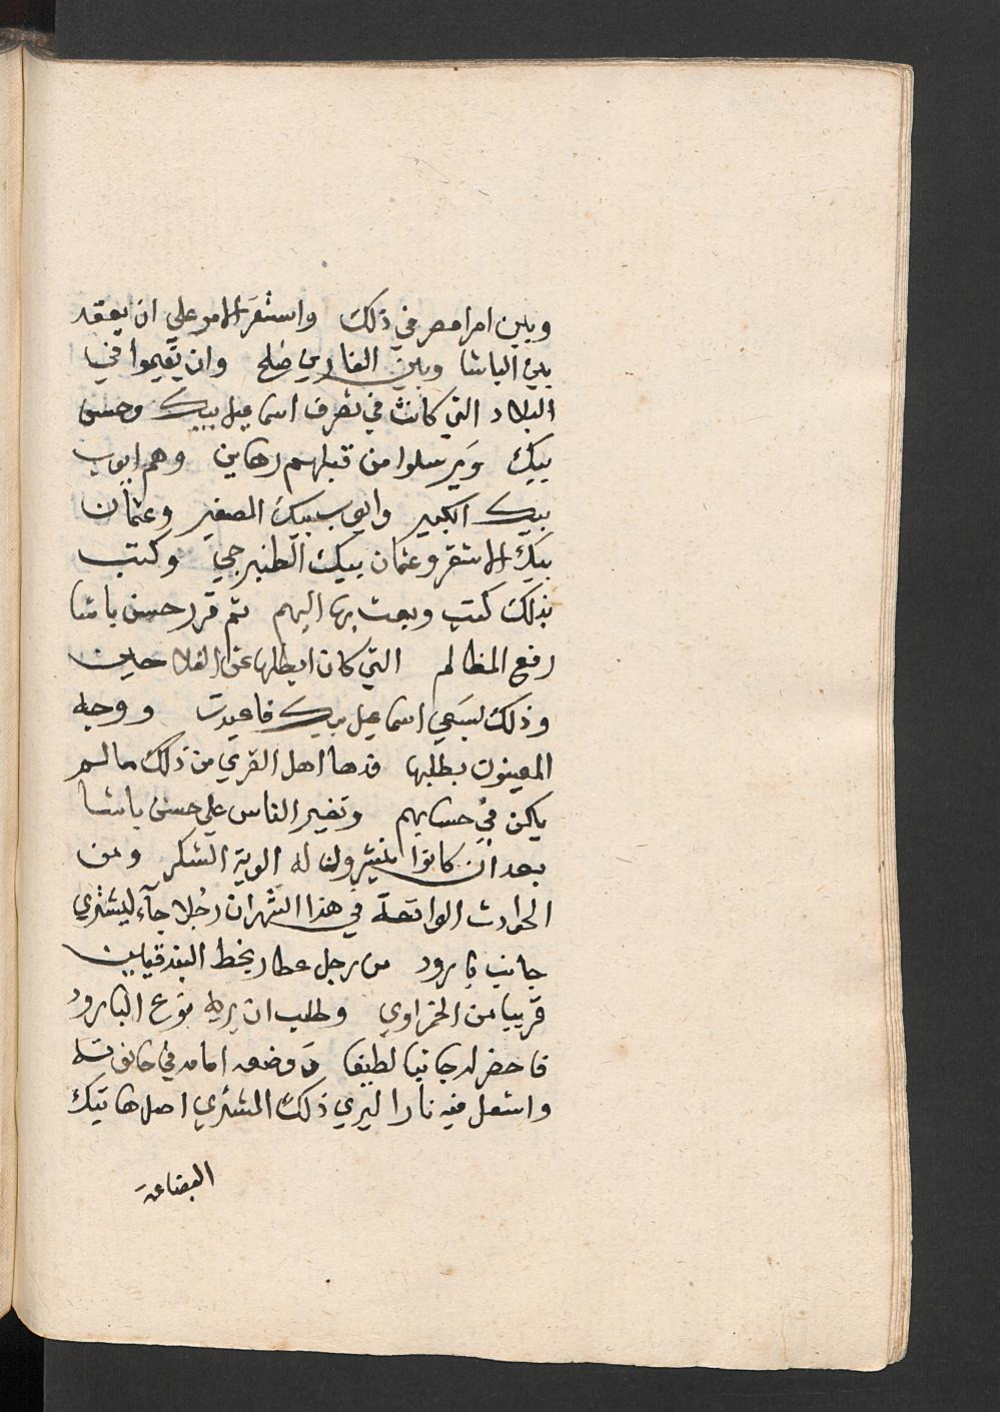 وبين امرا مصر في ذلك واستقر الامر علي ان يعقد
بين الباشا وبين الفارين صلح وان يقيموا في
البلاد التي كانت في تصرف اسماعيل بيك وحسن
بيك ويرسلوا من قبلهم رهاين وهم ايوب
بيك الكبير وايوب بيك الصغير وعثمان
بيك الاشقر وعثمان بيك الطنبرجي وكتب
بذلك كتب وبعث بها اليهم ثم قرر حسن باشا
رفع المظالم التي كان ابطلها عن الفلاحين
وذلك بسعي اسماعيل بيك فاعيدت ووجه
المعينون بطلبها فدها اهل القري من ذلك ما لم
يكن في حسابهم وتغير الناس علي حسن باشا
بعد ان كانوا ينشرون له الوية الشكر ومن
الحوادث الواقعة في هذا الشهر ان رجلا جآء ليشتري
جانب بارود من رجل عطار بخط البندقيين
قريبا من الخمراوي وطلب ان يريه نوع البارود
فاحضر له جانبا لطيفا ووضعه امامه في حانوته
واشعل فيه نارا ليري ذلك المشتري اصل هاتيك
البضاعة